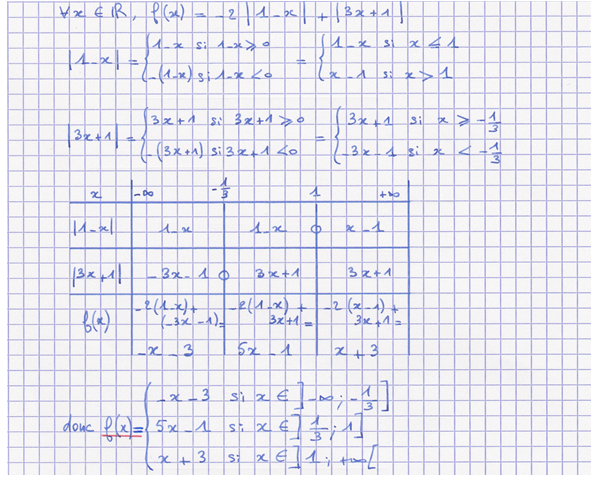 ∀x ∈ ℝ, f(x) = -2 |1-x| + |3x+1|
|1-x| = { 1-x si 1-x ≥ 0 = { 1-x si x ≤ 1
-(1-x) si 1-x < 0 x-1 si x > 1
|3x+1| = { 3x+1 si 3x+1 ≥ 0 = { 3x+1 si x ≥ -1/3
-(3x+1) si 3x+1 < 0 -3x-1 si x < -1/3
x -∞ -1/3 1 +∞
|1-x| 1-x 1-x 0 x-1
|3x+1| -3x-1 0 3x+1 3x+1
f(x) -2(1-x)+ -2(1-x)+ -2(x-1)+
(-3x-1)= 3x+1= 3x+1=
-x-3 5x-1 x+3
-x-3 si x ∈ ]-∞; -1/3]
donc f(x) = { 5x-1 si x ∈ ]1/3; 1]
x+3 si x ∈ ]1; +∞[